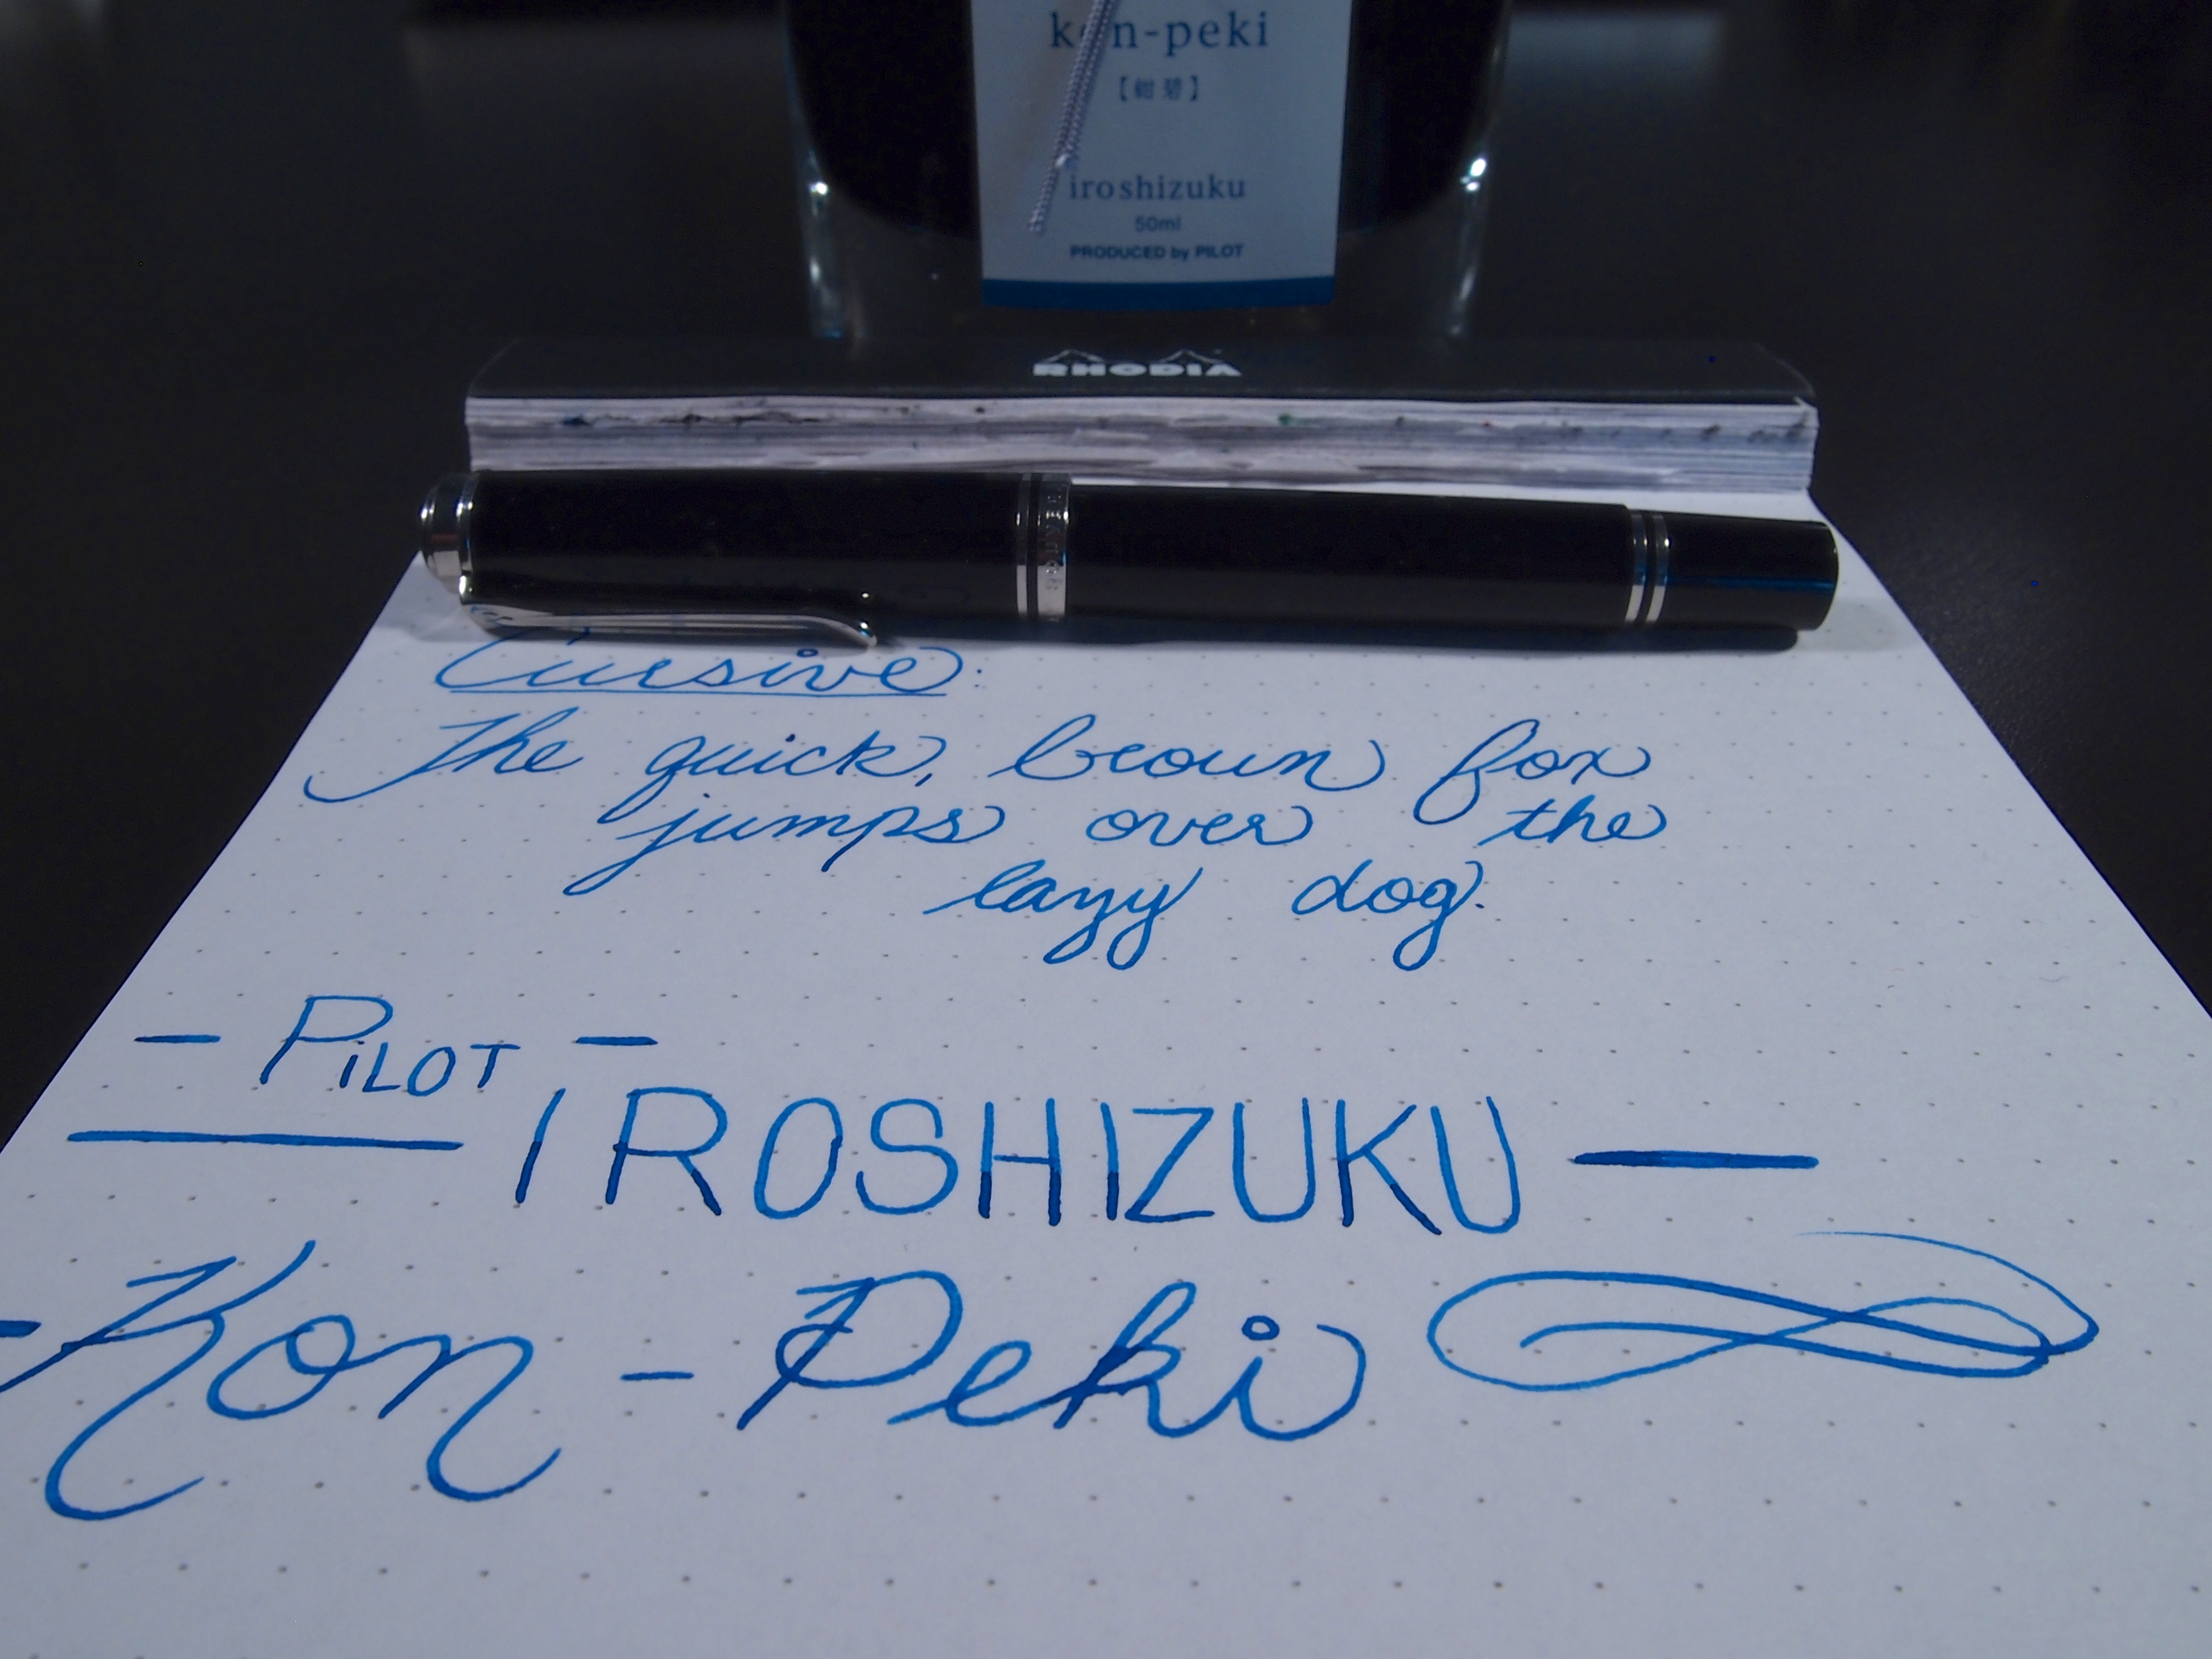 kon-peki
【紺碧】
iroshizuku
50ml
PRODUCED by PILOT
RHODIA
Cursive:
The quick, brown fox
jumps over the
lazy dog.
- PiLOT -
— IROSHIZUKU —
- Kon - Peki